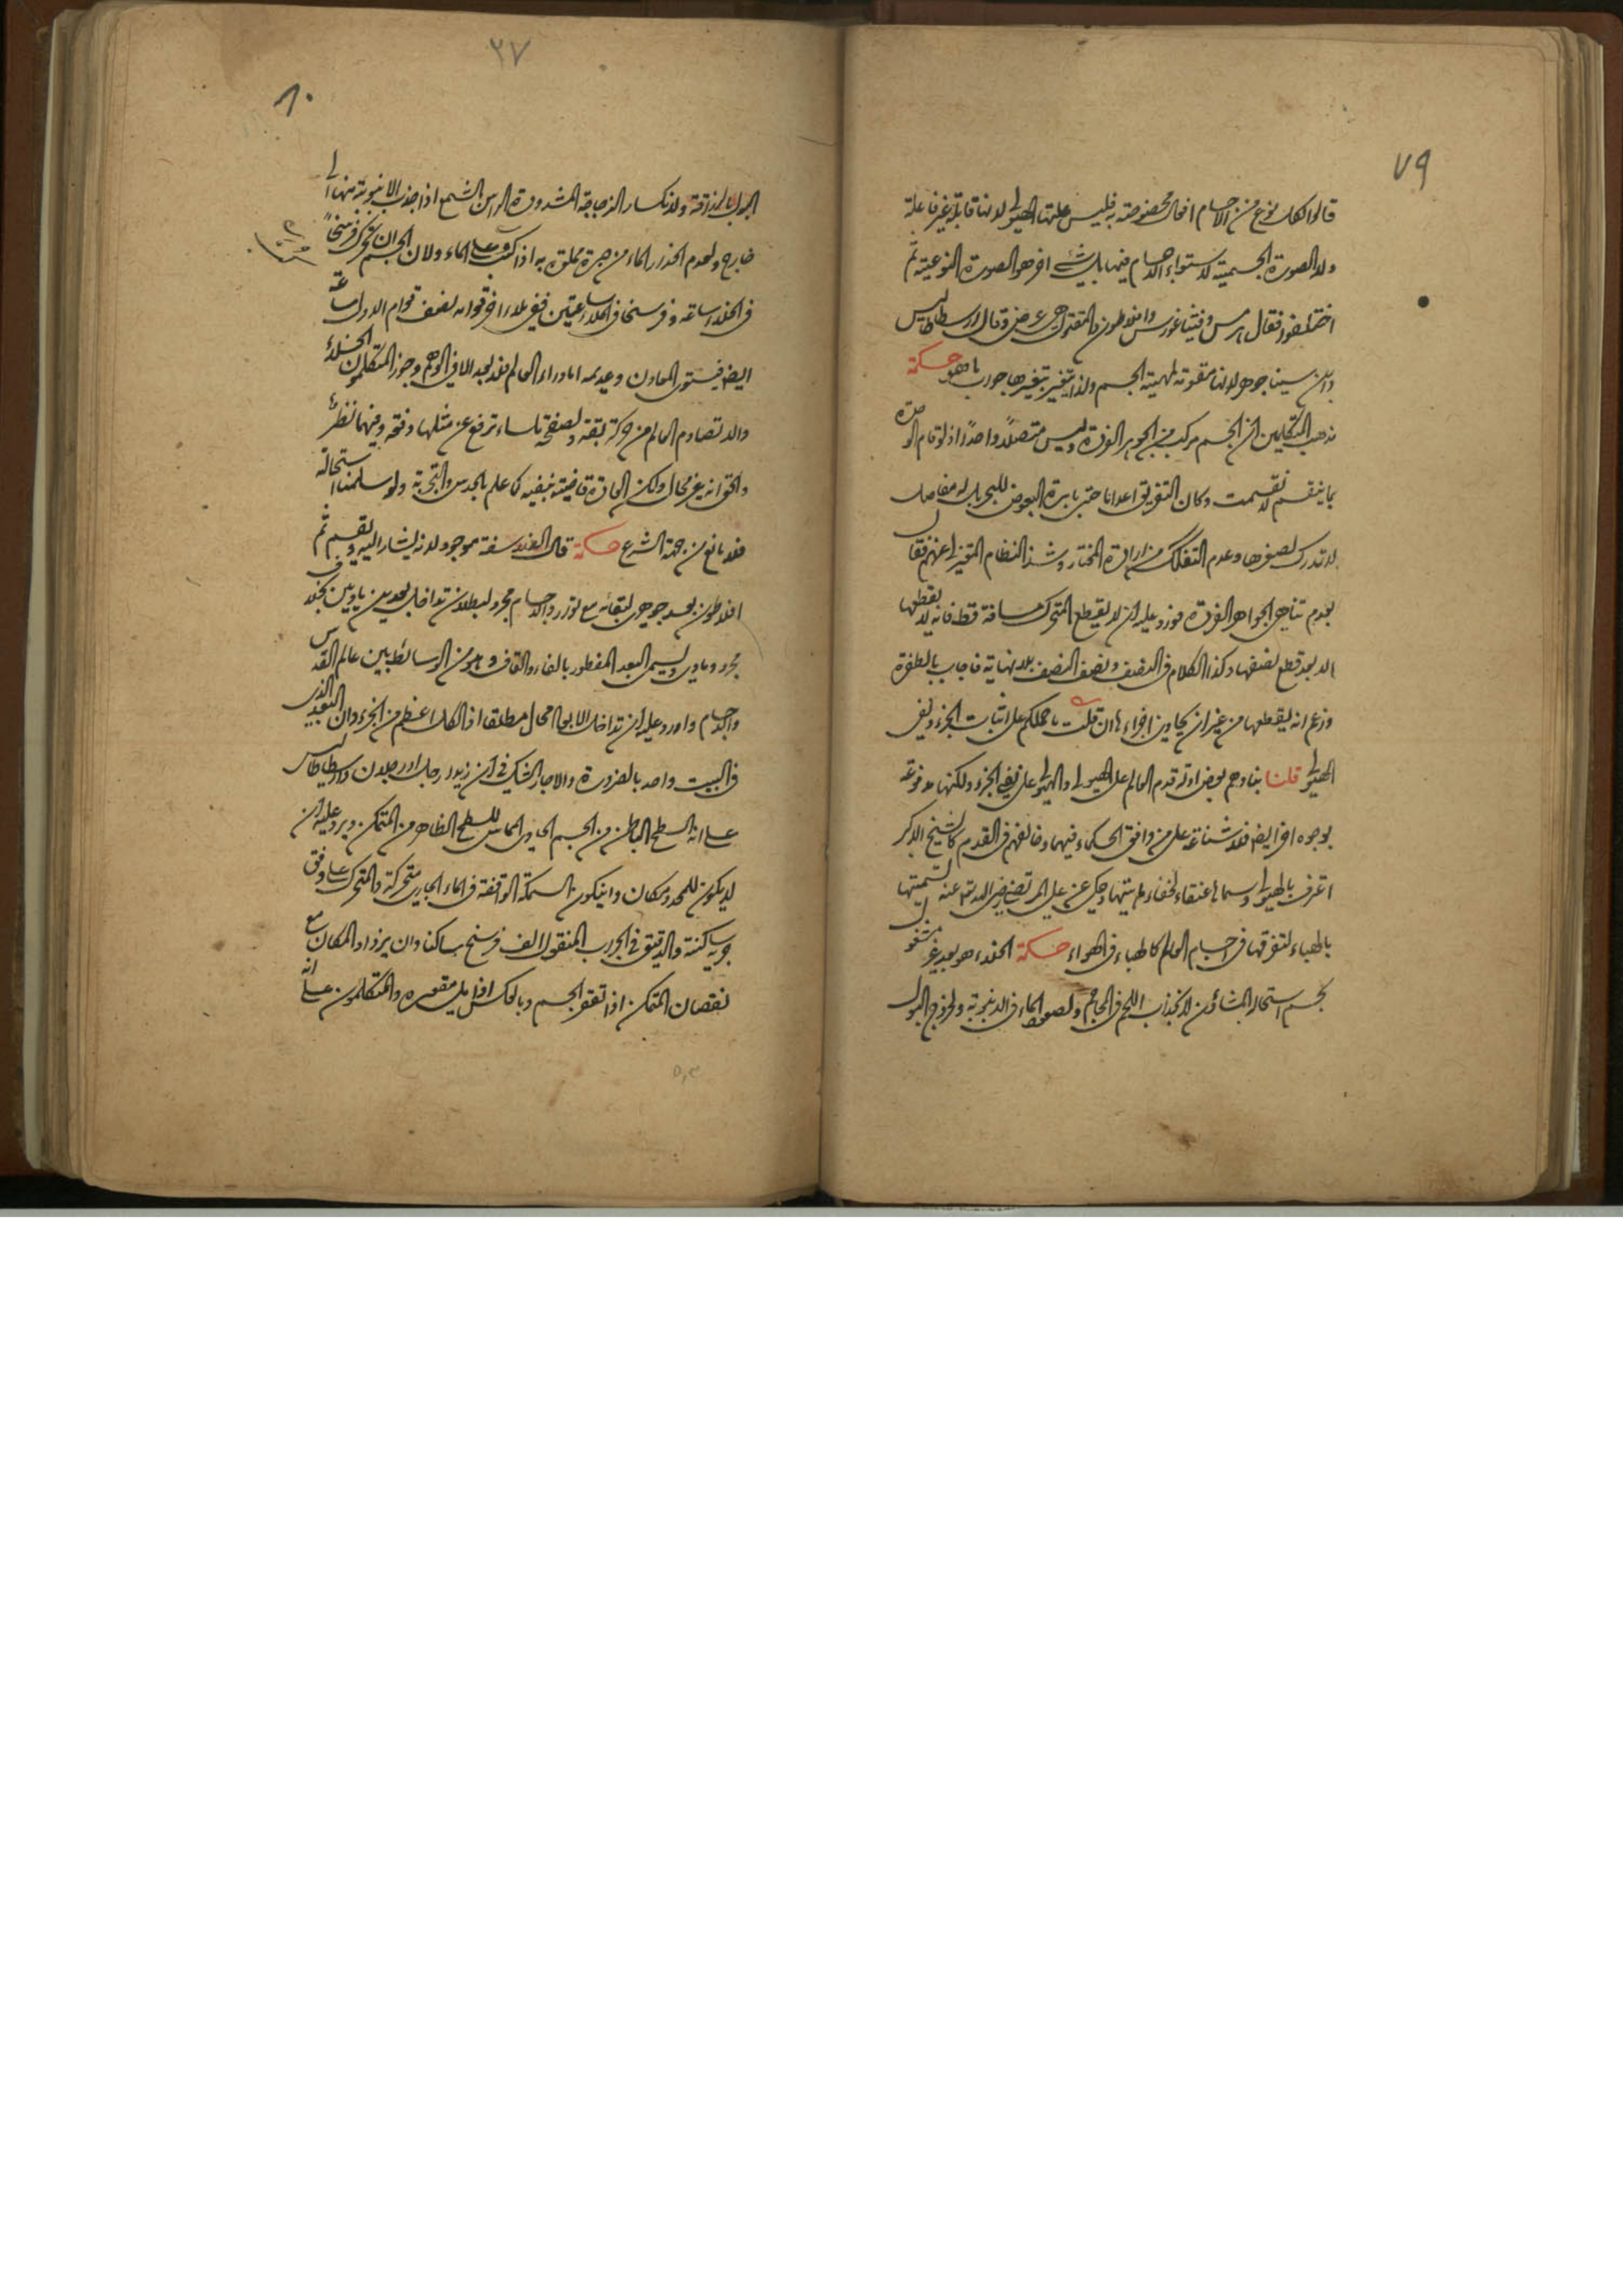 ٧٩
قالوا لكل نوع من الاجسام افعال مخصوصة به فليس علتها الهيولى لانها قابلة غير فاعلة
ولا الصورة الجسمية لاستواء الاجسام فيها بل شئ اخر هو الصورة النوعية ثم
اختلفوا فقال هرمس وفيثاغورس وافلاطون والمقتول هى عرض وقال ارسطاطاليس
وابن سينا جوهر لانها مقومة لمهية الجسم ولذا يتغير بتغيرها جواب ما هو حكمة
مذهب المتكلمين ان الجسم مركب من الجواهر الفردة وليس متصلا واحدا اذ لو قام الوحدة
بما ينقسم لانقسمت وكان التفريق اعداما حتى بابرة البعوض للبحر بل له مفاصل
لا تدرك لصغرها وعدم التفكك من ارادة المختار وشذ النظام المعتزلى عنهم فقال
بعدم تناهى الجواهر الفردة فورد عليه ان لا يقطع المتحرك مسافة قط فانه لا يقطعها
الا بعد قطع نصفها وكذا الكلام فى النصف ونصف النصف بلا نهاية فاجاب بالطفرة
وزعم انه يقطعها من غير ان يحاذى اجزاءها ان قلت ما حملكم على اثبات الجزء ونفى
الهيولى قلنا بناءهم بعض ادلة قدم العالم على الهيولى والهيولى على نفى الجزء ولكنها مدفوعة
بوجوه اخر ايضا فلا شناعة على من وافق الحكماء فيهما وخالفهم فى القدم كالشيخ الاكبر
اعترف بالهيولى وسماها عنقاء لخفاء ماهيتها وحكى عن على المرتضى رضى الله تعالى عنه تسميتها
بالهباء لتفرقها فى اجسام العالم كالهباء فى الهواء حكمة الخلاء هو بعد غير مشغول
بجسم استحاله المشاؤن لانجذاب اللحم فى المحاجم ولصعود الماء فى الانبوبة ولخروج البول
٢٧
٨٠
البول بالزراقة ولانكسار الزجاجة المشدودة الراس بالشمع اذا جذب الانبوبة منها الى
خارج ولعدم انحدار الماء من جرة مملوة به اذا كبت على الماء ولان الجسم ان تحرك فرسخا
فى الخلاء ساعة وفرسخا فى الملاء ساعتين ففى ملاء اخر قوامه نصف قوام الاول ساعة
ايضا فيستوى المعاون وعديمه اما وراء العالم فلا بعد الا فى الوهم وجوز المتكلمون الخلاء
والا تصادم العالم من حركة بقة ولصفحة ملساء ترفع عن مثلها دفعة وفيهما نظر
والحق انه غير محال ولكن العادة قاضية بنفيه كما علم بالحدس والتجربة ولو سلمنا استحالته
فلا مانع من جهة الشرع حكمة قال الفلاسفة موجود لانه يشار اليه ويقسم ثم
افلاطون بعد جوهرى لبقائه مع توارد الاجسام مجرد لبطلان تداخل بعدين ماديين بخلاف
مجرد ومادى وليسم البعد المفطور بالفاء والقاف وهو من الوسائط بين عالم القدس
والاجسام واورد عليه ان تداخل الابعاد محال مطلقا اذ الكل اعظم من الجزء وان البعد الذى
فى البيت واحد بالضرورة والا جاز الشك فى ان زيدا رجل او رجلان وارسطاطاليس
على انه السطح الباطن من الجسم الحاوى المماس للسطح الظاهر من المتمكن ويرد عليه ان
لا يكون للمحدد مكان وان يكون السمكة الواقفة فى الماء الجارى متحركة والمتحرك على وفق
جريه ساكنة والدقيق فى الجراب المنقول الف فرسخ ساكنا وان يزداد المكان مع
نقصان المتمكن اذا تقعر الجسم وبالعكس اذا ملئ مقعره والمتكلمون على انه